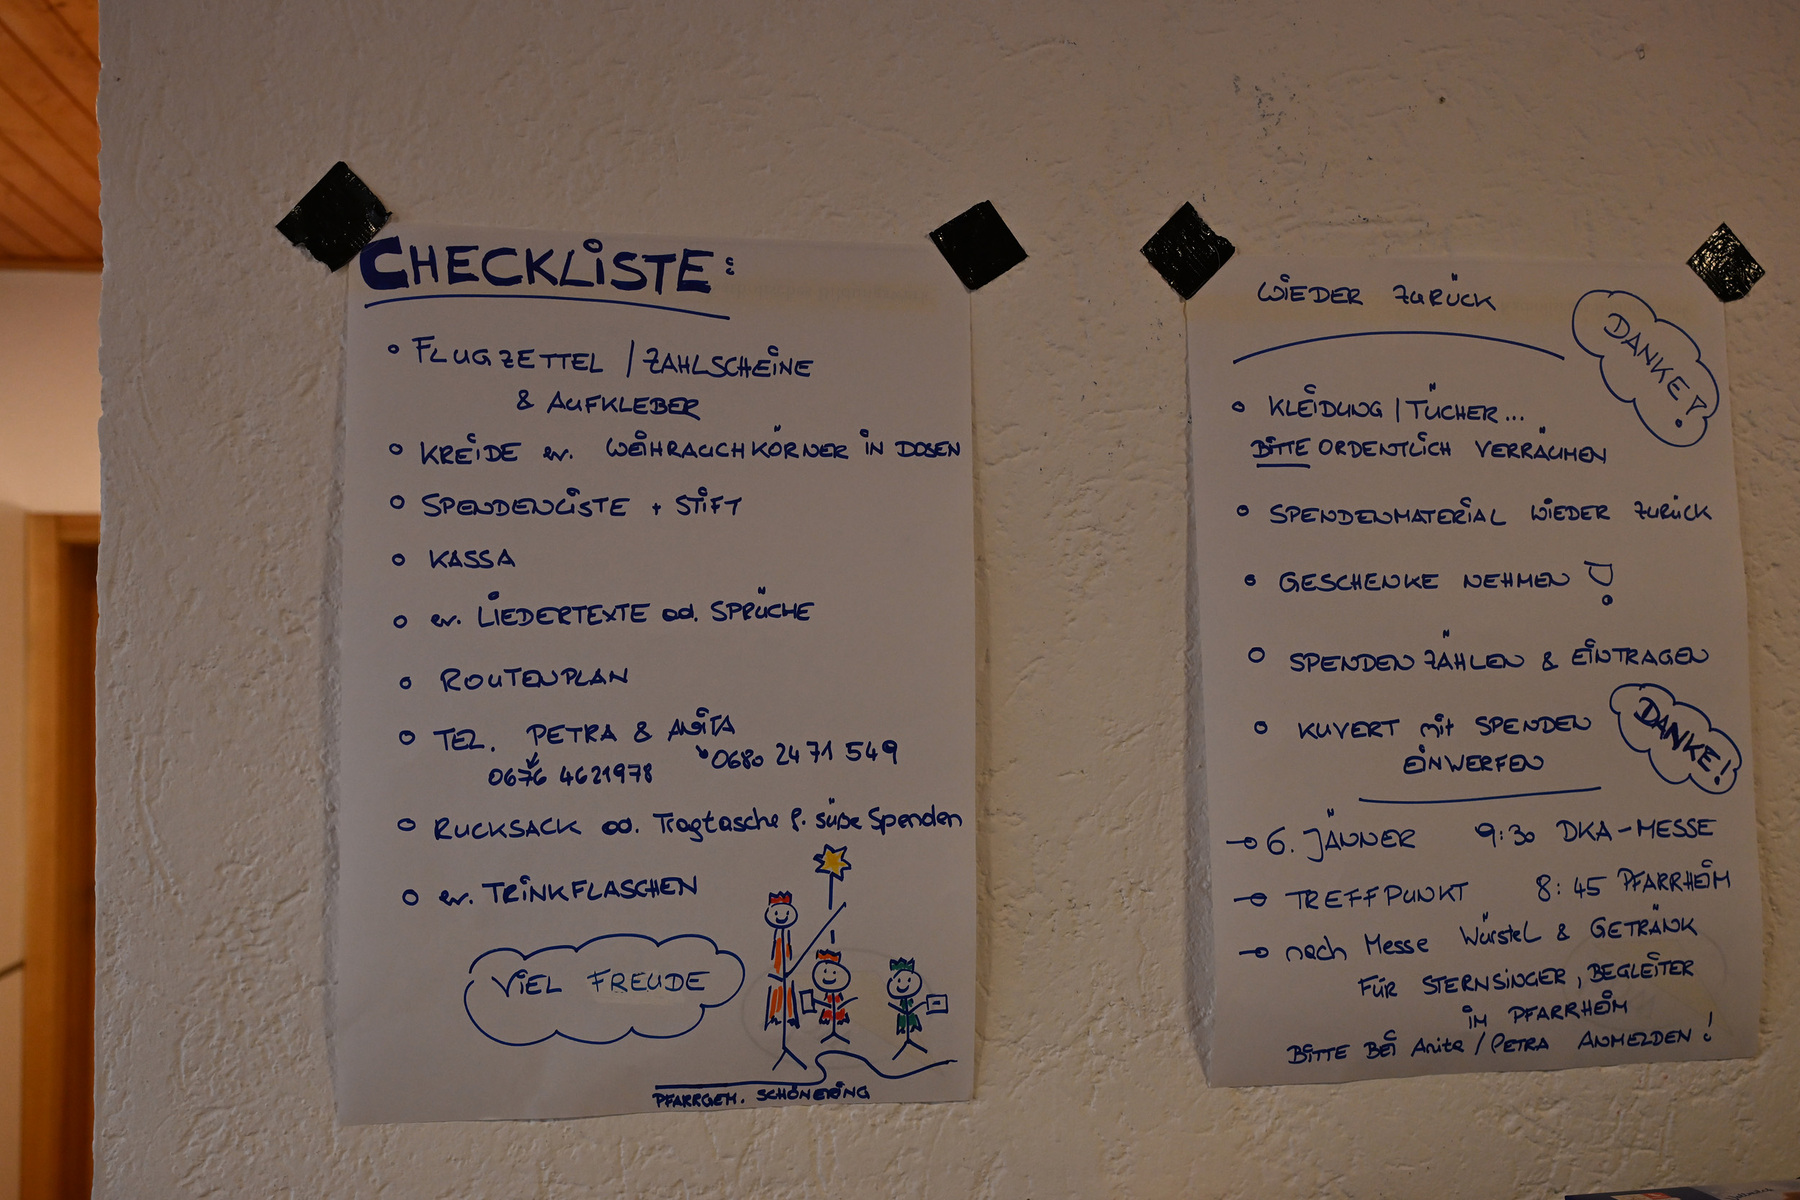 CHECKLISTE:
° FLUGZETTEL / ZAHLSCHEINE
& AUFKLEBER
° KREIDE ev. WEIHRAUCHKÖRNER IN DOSEN
° SPENDENLISTE + STIFT
° KASSA
° ev. LIEDERTEXTE od. SPRÜCHE
° ROUTENPLAN
° TEL. PETRA & ANITA
0676 4621978 0680 2471 549
° RUCKSACK od. Tragtasche f. süße Spenden
° ev. TRINKFLASCHEN
VIEL FREUDE
PFARRGEM. SCHÖNERING
WIEDER ZURÜCK
DANKE!
° KLEIDUNG / TÜCHER...
BITTE ORDENTLICH VERRÄUMEN
° SPENDENMATERIAL WIEDER ZURÜCK
° GESCHENKE NEHMEN!
° SPENDEN ZÄHLEN & EINTRAGEN
° KUVERT mit SPENDEN
EINWERFEN
DANKE!
→ 6. JÄNNER 9:30 DKA-MESSE
→ TREFFPUNKT 8:45 PFARRHEIM
→ nach Messe Würstel & GETRÄNK
FÜR STERNSINGER, BEGLEITER
IM PFARRHEIM
BITTE BEI Anita / PETRA ANMELDEN!